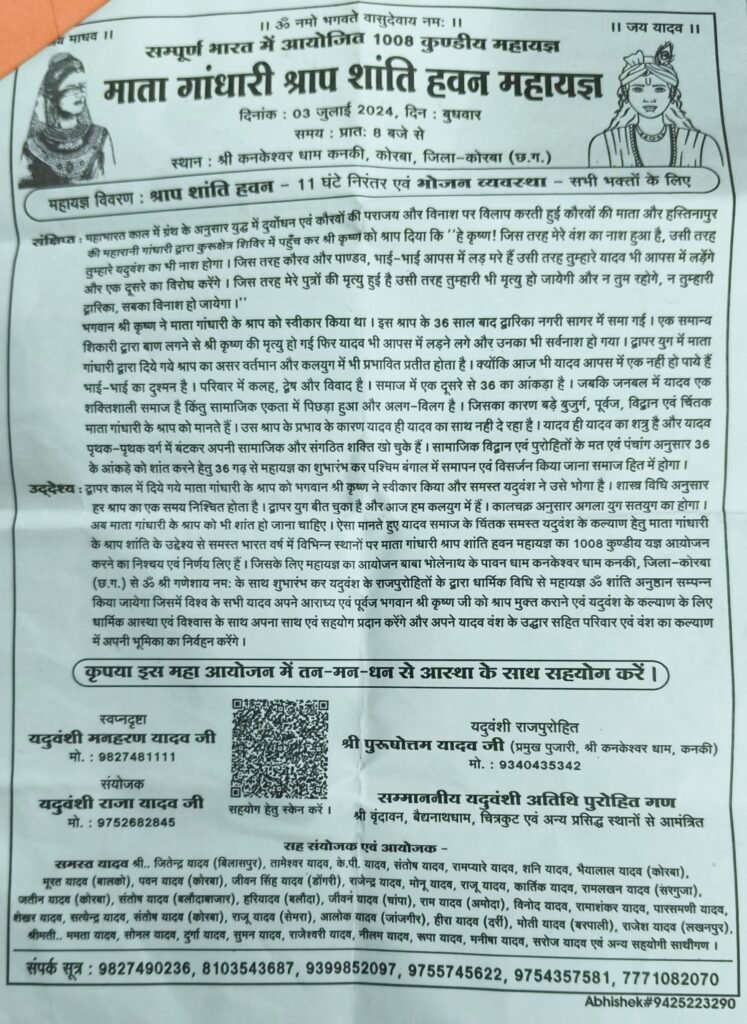 ।। ॐ नमो भगवते वासुदेवाय नमः ।।
माधव ।।
।। जय यादव ।।
सम्पूर्ण भारत में आयोजित 1008 कुण्डीय महायज्ञ
माता गांधारी श्राप शांति हवन महायज्ञ
दिनांक : 03 जुलाई 2024, दिन : बुधवार
समय : प्रातः 8 बजे से
स्थान : श्री कनकेश्वर धाम कनकी, कोरबा, जिला-कोरबा (छ.ग.)
महायज्ञ विवरण : श्राप शांति हवन - 11 घंटे निरंतर एवं भोजन व्यवस्था - सभी भक्तों के लिए
संक्षिप्त : महाभारत काल में ग्रंथ के अनुसार युद्ध में दुर्योधन एवं कौरवों की पराजय और विनाश पर विलाप करती हुई कौरवों की माता और हस्तिनापुर
की महारानी गांधारी द्वारा कुरूक्षेत्र शिविर में पहुँच कर श्री कृष्ण को श्राप दिया कि ''हे कृष्ण! जिस तरह मेरे वंश का नाश हुआ है, उसी तरह
तुम्हारे यदुवंश का भी नाश होगा । जिस तरह कौरव और पाण्डव, भाई-भाई आपस में लड़ मरे हैं उसी तरह तुम्हारे यादव भी आपस में लड़ेंगे
और एक दूसरे का विरोध करेंगे । जिस तरह मेरे पुत्रों की मृत्यु हुई है उसी तरह तुम्हारी भी मृत्यु हो जायेगी और न तुम रहोगे, न तुम्हारी
द्वारिका, सबका विनाश हो जायेगा ।''
भगवान श्री कृष्ण ने माता गांधारी के श्राप को स्वीकार किया था । इस श्राप के 36 साल बाद द्वारिका नगरी सागर में समा गई । एक समान्य
शिकारी द्वारा बाण लगने से श्री कृष्ण की मृत्यु हो गई फिर यादव भी आपस में लड़ने लगे और उनका भी सर्वनाश हो गया । द्वापर युग में माता
गांधारी द्वारा दिये गये श्राप का असर वर्तमान और कलयुग में भी प्रभावित प्रतीत होता है । क्योंकि आज भी यादव आपस में एक नहीं हो पाये हैं
भाई-भाई का दुश्मन है । परिवार में कलह, द्वेष और विवाद है । समाज में एक दूसरे से 36 का आंकड़ा है । जबकि जनबल में यादव एक
शक्तिशाली समाज है किंतु सामाजिक एकता में पिछड़ा हुआ और अलग-विलग है । जिसका कारण बड़े बुजुर्ग, पूर्वज, विद्वान एवं चिंतक
माता गांधारी के श्राप को मानते हैं । उस श्राप के प्रभाव के कारण यादव ही यादव का साथ नही दे रहा है । यादव ही यादव का शत्रु है और यादव
पृथक-पृथक वर्ग में बंटकर अपनी सामाजिक और संगठित शक्ति खो चुके हैं । सामाजिक विद्वान एवं पुरोहितों के मत एवं पंचांग अनुसार 36
के आंकड़े को शांत करने हेतु 36 गढ़ से महायज्ञ का शुभारंभ कर पश्चिम बंगाल में समापन एवं विसर्जन किया जाना समाज हित में होगा ।
उद्देश्य : द्वापर काल में दिये गये माता गांधारी के श्राप को भगवान श्री कृष्ण ने स्वीकार किया और समस्त यदुवंश ने उसे भोगा है । शास्त्र विधि अनुसार
हर श्राप का एक समय निश्चित होता है । द्वापर युग बीत चुका है और आज हम कलयुग में हैं । कालचक्र अनुसार अगला युग सतयुग का होगा ।
अब माता गांधारी के श्राप को भी शांत हो जाना चाहिए । ऐसा मानते हुए यादव समाज के चिंतक समस्त यदुवंश के कल्याण हेतु माता गांधारी
के श्राप शांति के उद्देश्य से समस्त भारत वर्ष में विभिन्न स्थानों पर माता गांधारी श्राप शांति हवन महायज्ञ का 1008 कुण्डीय यज्ञ आयोजन
करने का निश्चय एवं निर्णय लिए हैं । जिसके लिए महायज्ञ का आयोजन बाबा भोलेनाथ के पावन धाम कनकेश्वर धाम कनकी, जिला-कोरबा
(छ.ग.) से ॐ श्री गणेशाय नमः के साथ शुभारंभ कर यदुवंश के राजपुरोहितों के द्वारा धार्मिक विधि से महायज्ञ ॐ शांति अनुष्ठान सम्पन्न
किया जायेगा जिसमें विश्व के सभी यादव अपने आराध्य एवं पूर्वज भगवान श्री कृष्ण जी को श्राप मुक्त कराने एवं यदुवंश के कल्याण के लिए
धार्मिक आस्था एवं विश्वास के साथ अपना साथ एवं सहयोग प्रदान करेंगे और अपने यादव वंश के उद्धार सहित परिवार एवं वंश का कल्याण
में अपनी भूमिका का निर्वहन करेंगे ।
कृपया इस महा आयोजन में तन-मन-धन से आस्था के साथ सहयोग करें ।
स्वप्नदृष्टा
यदुवंशी मनहरण यादव जी
मो. : 9827481111
संयोजक
यदुवंशी राजा यादव जी
मो. : 9752682845
सहयोग हेतु स्केन करें ।
यदुवंशी राजपुरोहित
श्री पुरूषोत्तम यादव जी (प्रमुख पुजारी, श्री कनकेश्वर धाम, कनकी)
मो. : 9340435342
सम्माननीय यदुवंशी अतिथि पुरोहित गण
श्री वृंदावन, बैद्यनाथधाम, चित्रकुट एवं अन्य प्रसिद्ध स्थानों से आमंत्रित
सह संयोजक एवं आयोजक -
समस्त यादव श्री.. जितेन्द्र यादव (बिलासपुर), तामेश्वर यादव, के.पी. यादव, संतोष यादव, रामप्यारे यादव, शनि यादव, भैयालाल यादव (कोरबा),
मूरत यादव (बालको), पवन यादव (कोरबा), जीवन सिंह यादव (डोंगरी), राजेन्द्र यादव, मोनू यादव, राजू यादव, कार्तिक यादव, रामलखन यादव (सरगुजा),
जतीन यादव (कोरबा), संतोष यादव (बलौदाबाजार), हरियादव (बलौदा), जीवन यादव (चांपा), राम यादव (अमोदा), विनोद यादव, रामाशंकर यादव, पारसमणी यादव,
शेखर यादव, सत्येन्द्र यादव, संतोष यादव (कोरबा), राजू यादव (सेमरा), आलोक यादव (जांजगीर), हीरा यादव (दर्री), मोती यादव (बरपाली), राजेश यादव (लखनपुर),
श्रीमती.. ममता यादव, सोनल यादव, दुर्गा यादव, सुमन यादव, राजेश्वरी यादव, नीलम यादव, रूपा यादव, मनीषा यादव, सरोज यादव एवं अन्य सहयोगी साथीगण ।
संपर्क सूत्र : 9827490236, 8103543687, 9399852097, 9755745622, 9754357581, 7771082070
Abhishek#9425223290